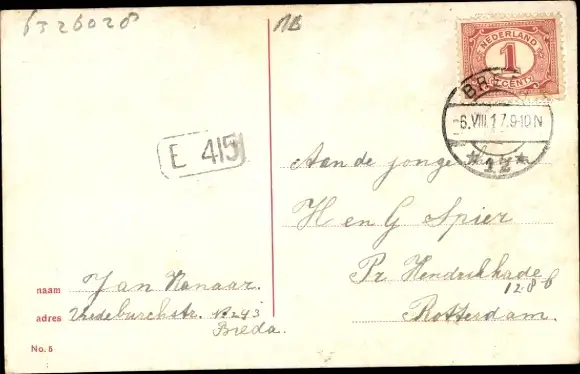 6326028
MB
NEDERLAND
1
CENT
BREDA
6.VIII.17.9-10N
* 12 *
E 415
Aan de jonge
H en G Spier
Pr Hendrikkade
12-8-6
Rotterdam.
naam Jan Kanaar.
adres Vredeburchstr. No 243
Breda.
No. 5